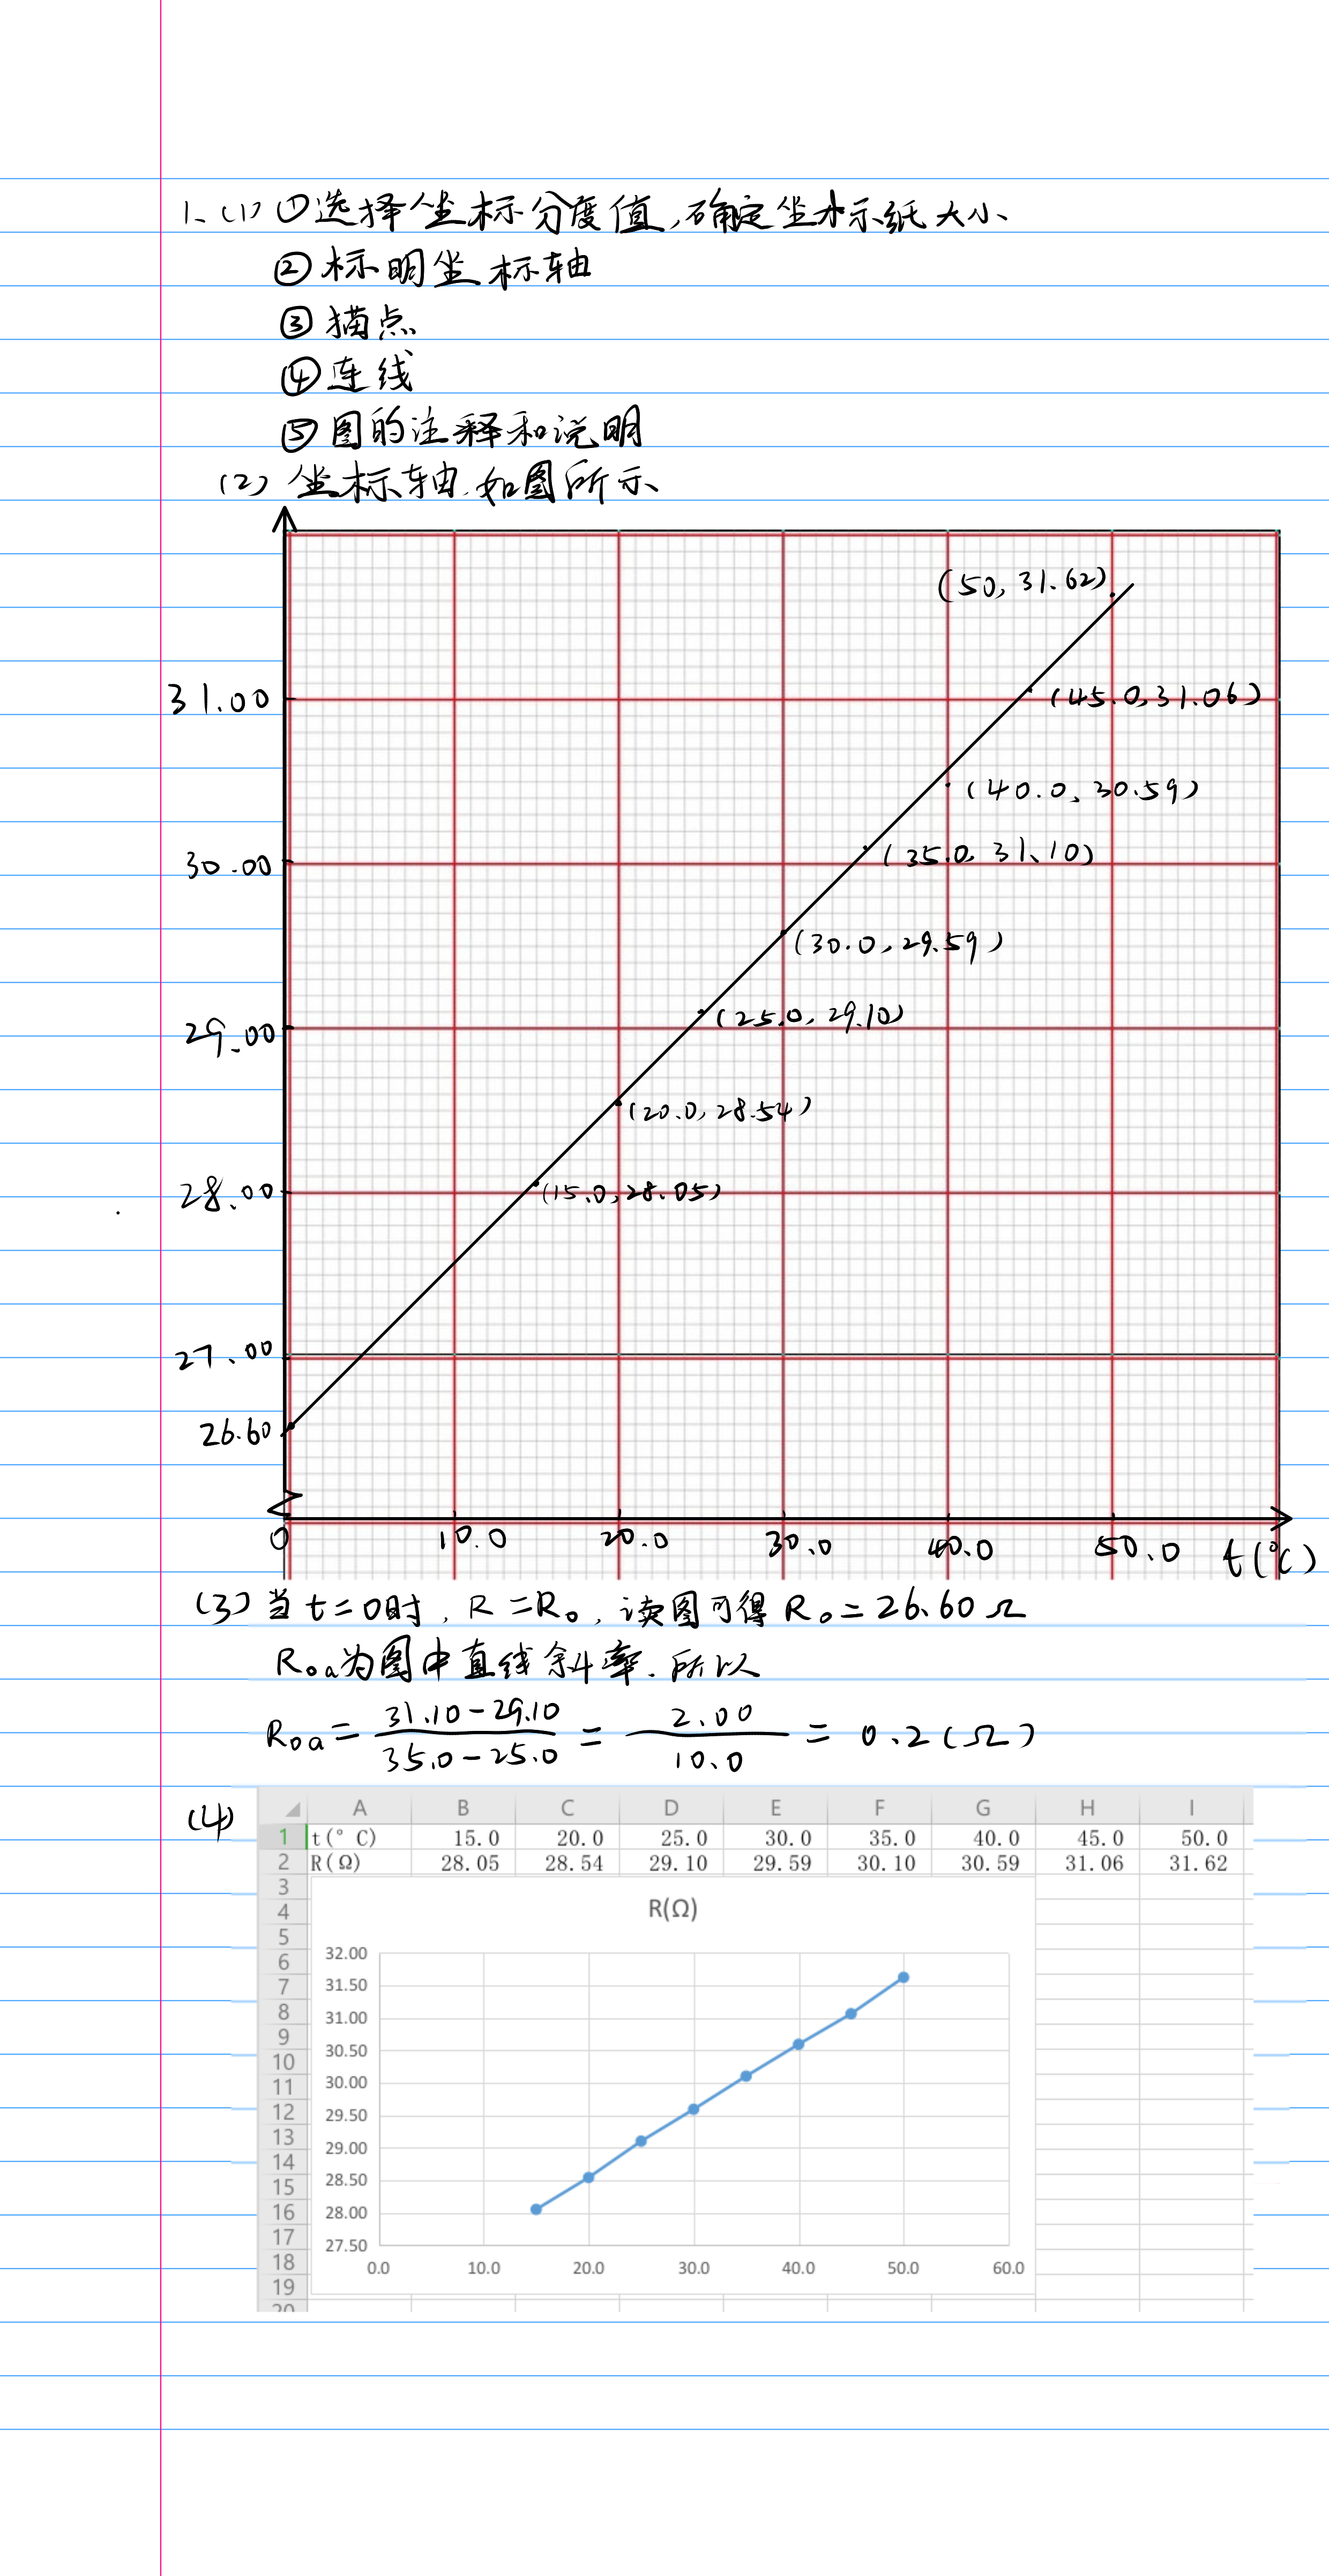 1、(1) ①选择坐标分度值,确定坐标纸大小
②标明坐标轴
③描点
④连线
⑤图的注释和说明
(2) 坐标轴.如图所示
(50, 31.62)
31.00
(45.0,31.06)
(40.0, 30.59)
30.00
(35.0, 31.10)
(30.0,29.59)
29.00
(25.0, 29.10)
(20.0,28.54)
28.00
(15.0,28.05)
27.00
26.60
0 10.0 20.0 30.0 40.0 50.0 t(℃)
(3) 当t=0时, R=R₀, 读图可得R₀=26.60Ω
R₀a为图中直线斜率.所以
R₀a = (31.10-29.10)/(35.0-25.0) = 2.00/10.0 = 0.2(Ω)
(4)
A B C D E F G H I
1 t(° C) 15.0 20.0 25.0 30.0 35.0 40.0 45.0 50.0
2 R(Ω) 28.05 28.54 29.10 29.59 30.10 30.59 31.06 31.62
3
4 R(Ω)
5
6 32.00
7 31.50
8 31.00
9
10 30.50
11 30.00
12 29.50
13
14 29.00
15 28.50
16 28.00
17 27.50
18 0.0 10.0 20.0 30.0 40.0 50.0 60.0
19
20